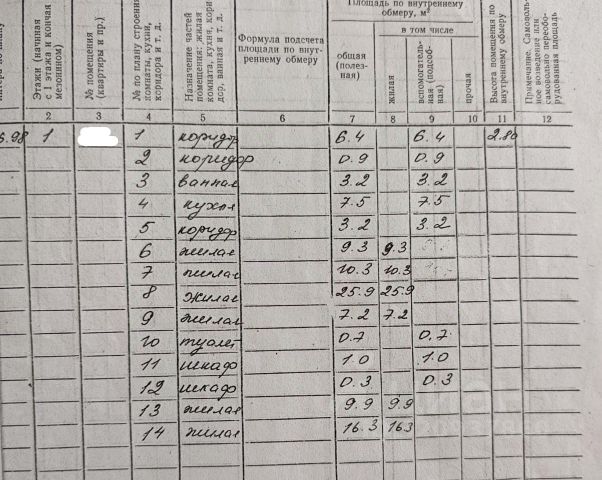 Площадь по внутреннему
обмеру, м²
в том числе
Этажи (начиная
с 1 этажа и кончая
мезонином)
№ помещения
(квартиры и пр.)
№ по плану строения
комнаты, кухни,
коридора и т. д.
Назначение частей
помещения: жилая
комната, кухня, кори
дор, ванная и т. д.
Формула подсчета
площади по внут-
реннему обмеру
общая
(полез-
ная)
жилая
вспомогатель-
ная (подсоб-
ная)
прочая
Высота помещения по
внутреннему обмеру
Примечание. Самоволь-
ное возведение или
самовольно переобо-
рудованная площадь
2 3 4 5 6 7 8 9 10 11 12
1 1 коридор 6.4 6.4 2.80
2 коридор 0.9 0.9
3 ванная 3.2 3.2
4 кухня 7.5 7.5
5 коридор 3.2 3.2
6 жилая 9.3 9.3
7 жилая 10.3 10.3
8 жилая 25.9 25.9
9 жилая 7.2 7.2
10 туалет 0.7 0.7
11 шкаф 1.0 1.0
12 шкаф 0.3 0.3
13 жилая 9.9 9.9
14 жилая 16.3 163